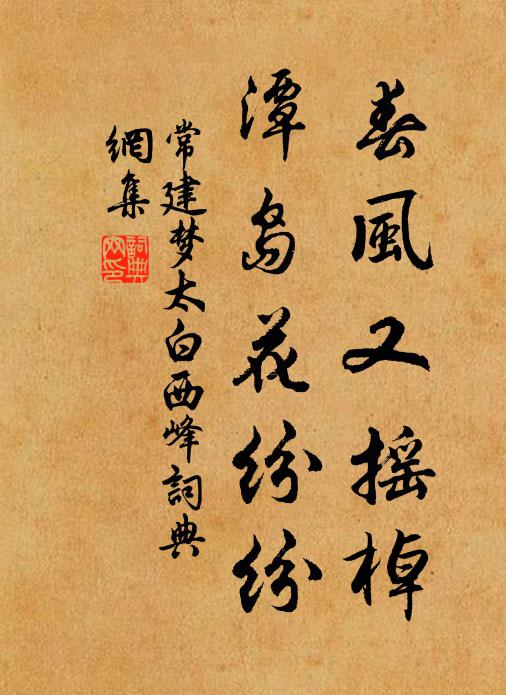 春風又摇棹
潭島花纷纷
常建梦太白西峰詞典
網集
詞典
网印